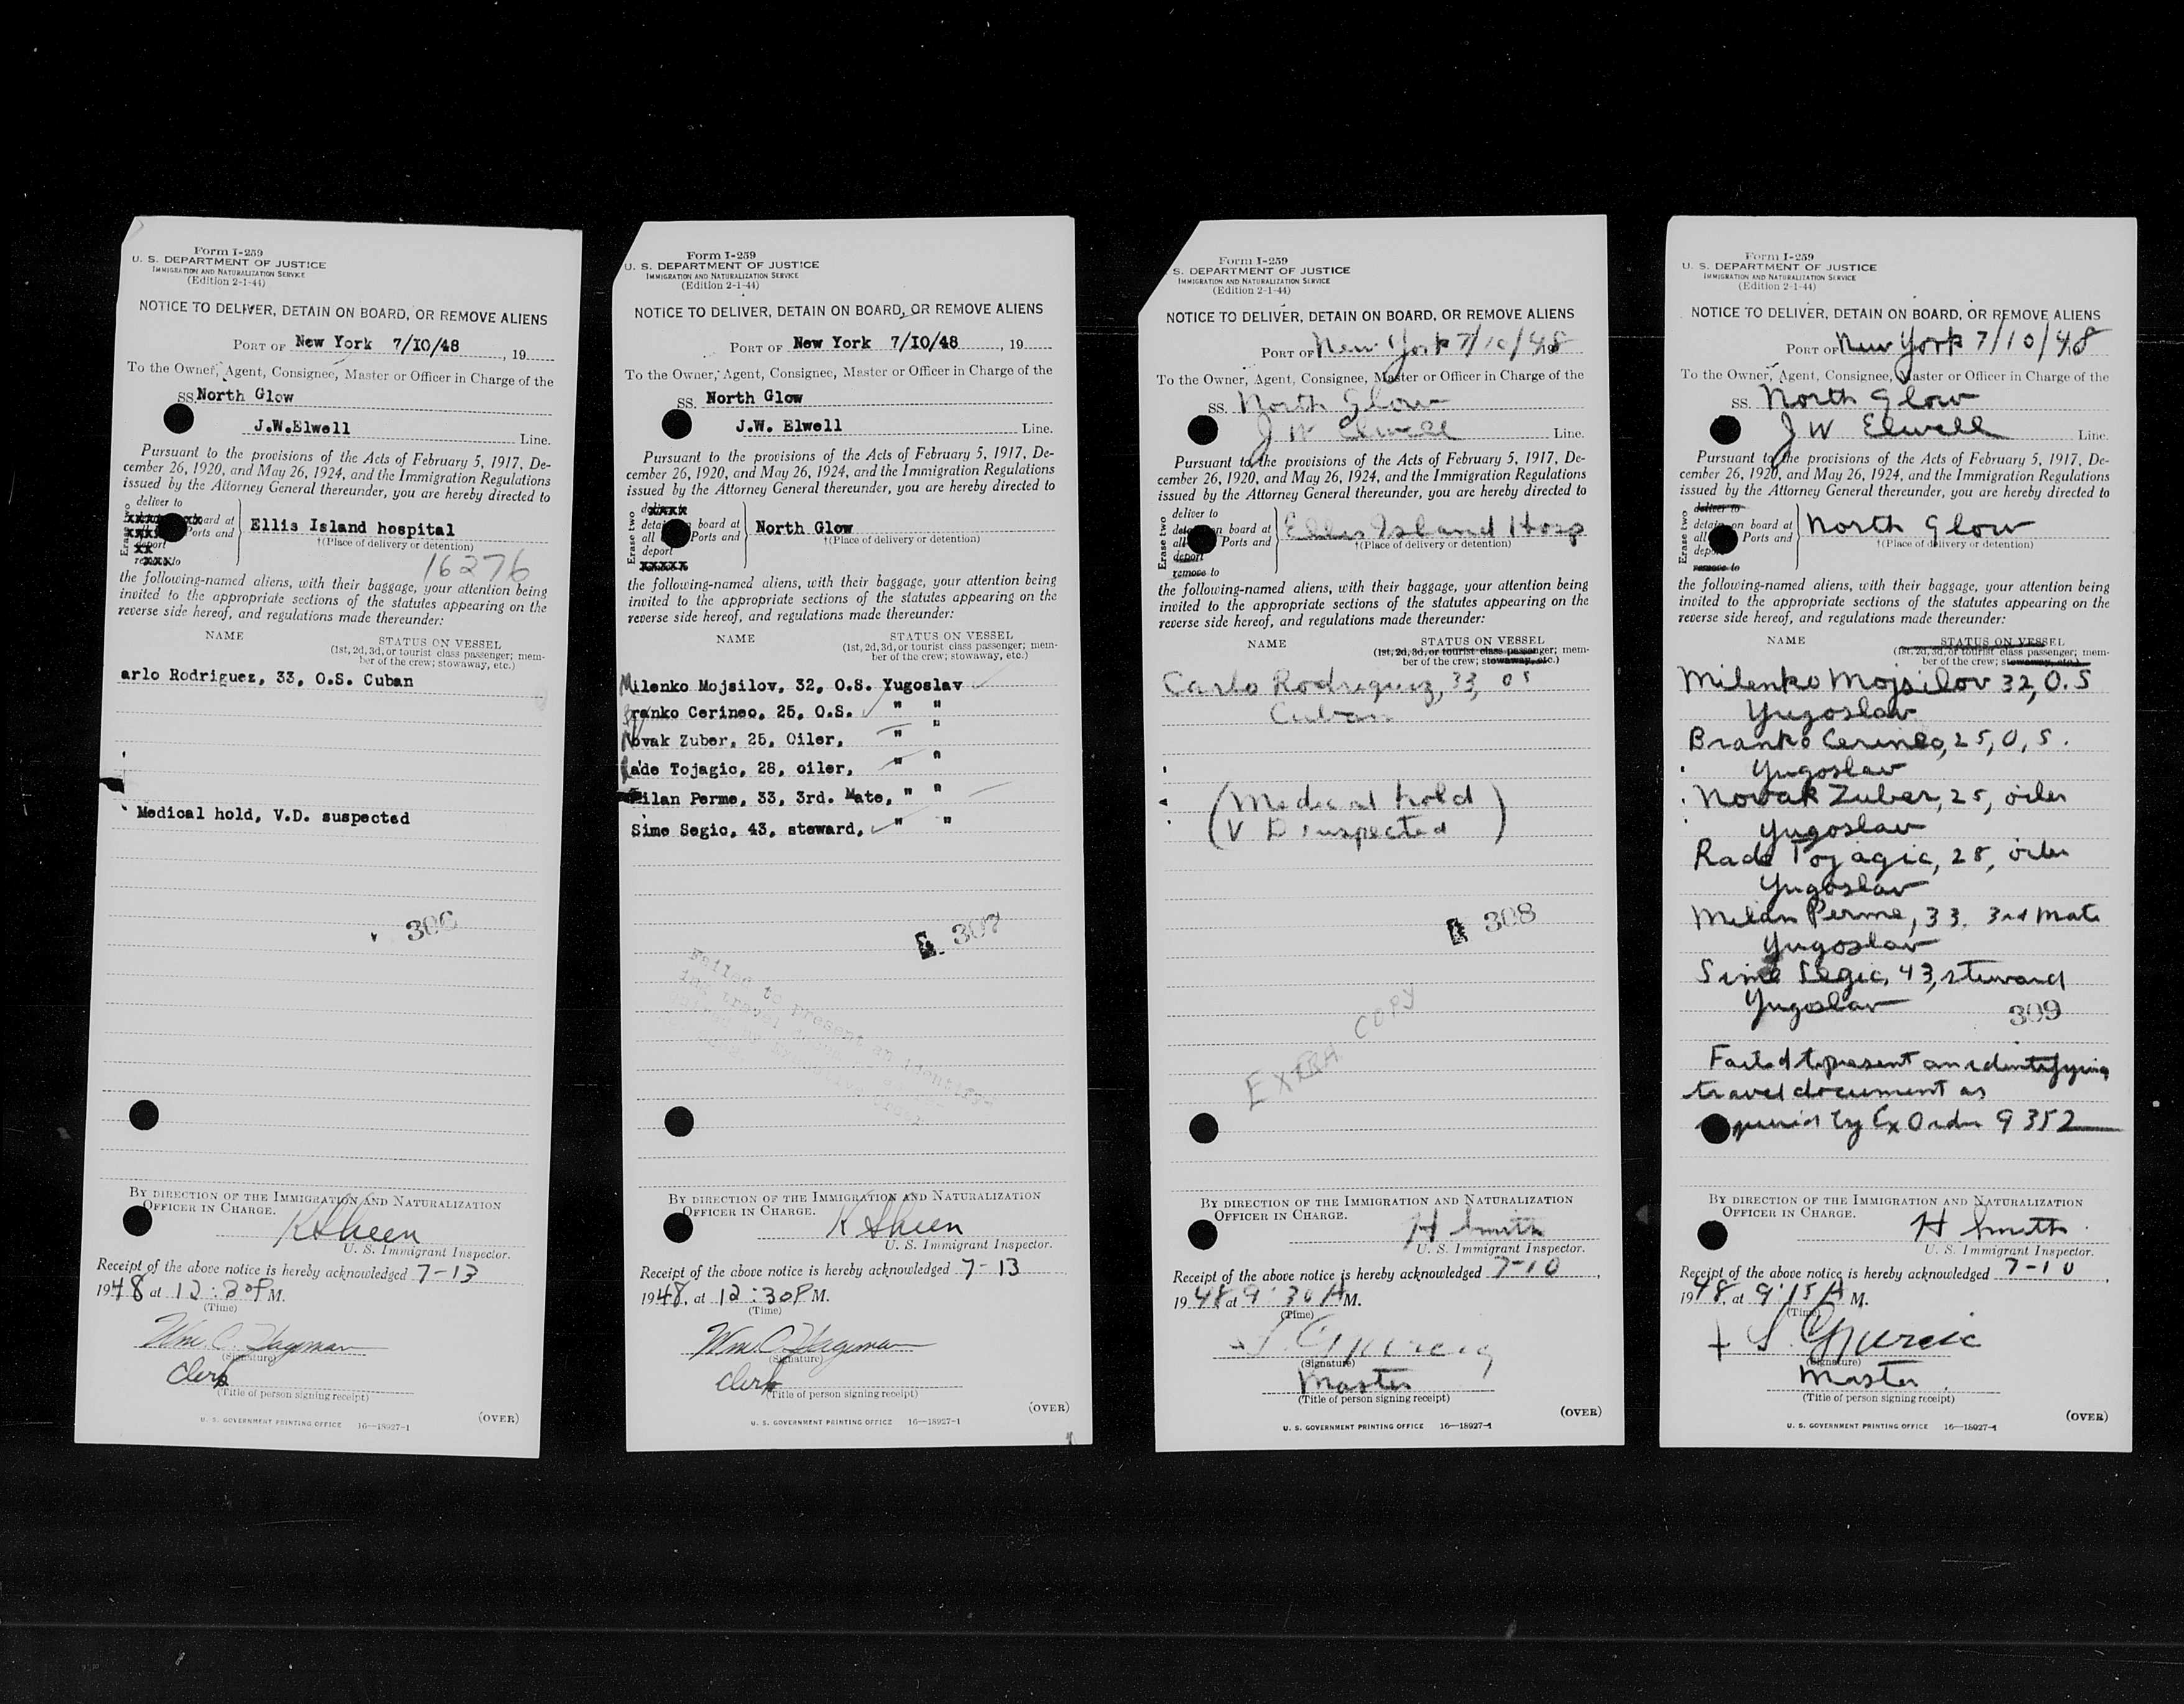 Form I-259
U. S. DEPARTMENT OF JUSTICE
IMMIGRATION AND NATURALIZATION SERVICE
(Edition 2-1-44)
NOTICE TO DELIVER, DETAIN ON BOARD, OR REMOVE ALIENS
PORT OF New York 7/10/48, 19
To the Owner, Agent, Consignee, Master or Officer in Charge of the
SS. North Glow
J.W.Elwell Line.
Pursuant to the provisions of the Acts of February 5, 1917, De-
cember 26, 1920, and May 26, 1924, and the Immigration Regulations
issued by the Attorney General thereunder, you are hereby directed to
Erase two
deliver to
board at
Ports and
deport
Ellis Island hospital
†(Place of delivery or detention)
16276
the following-named aliens, with their baggage, your attention being
invited to the appropriate sections of the statutes appearing on the
reverse side hereof, and regulations made thereunder:
NAME STATUS ON VESSEL
(1st, 2d, 3d, or tourist class passenger; mem-
ber of the crew; stowaway, etc.)
arlo Rodriguez, 33, O.S. Cuban
Medical hold, V.D. suspected
306
BY DIRECTION OF THE IMMIGRATION AND NATURALIZATION
OFFICER IN CHARGE.
K Sheen
U. S. Immigrant Inspector.
Receipt of the above notice is hereby acknowledged 7-13
1948 at 12:30 P M.
(Time)
Wm. C. Hageman
(Signature)
Clerk
(Title of person signing receipt)
U. S. GOVERNMENT PRINTING OFFICE 16—18927-1
(OVER)
Form I-259
U. S. DEPARTMENT OF JUSTICE
IMMIGRATION AND NATURALIZATION SERVICE
(Edition 2-1-44)
NOTICE TO DELIVER, DETAIN ON BOARD, OR REMOVE ALIENS
PORT OF New York 7/10/48, 19
To the Owner, Agent, Consignee, Master or Officer in Charge of the
SS. North Glow
J.W. Elwell Line.
Pursuant to the provisions of the Acts of February 5, 1917, De-
cember 26, 1920, and May 26, 1924, and the Immigration Regulations
issued by the Attorney General thereunder, you are hereby directed to
Erase two
detain board at
all Ports and
deport
North Glow
†(Place of delivery or detention)
the following-named aliens, with their baggage, your attention being
invited to the appropriate sections of the statutes appearing on the
reverse side hereof, and regulations made thereunder:
NAME STATUS ON VESSEL
(1st, 2d, 3d, or tourist class passenger; mem-
ber of the crew; stowaway, etc.)
Milenko Mojsilov, 32, O.S. Yugoslav
Branko Cerineo, 25, O.S. " "
Novak Zuber, 25, Oiler, " "
Rade Tojagic, 28, oiler, " "
Milan Perme, 33, 3rd. Mate, " "
Sime Segic, 43, steward, " "
307
Failed to present an identify-
ing travel
BY DIRECTION OF THE IMMIGRATION AND NATURALIZATION
OFFICER IN CHARGE.
K Sheen
U. S. Immigrant Inspector.
Receipt of the above notice is hereby acknowledged 7-13
1948, at 12:30 P M.
(Time)
Wm. C. Hageman
(Signature)
Clerk
(Title of person signing receipt)
(OVER)
U. S. GOVERNMENT PRINTING OFFICE 16—18927-1
Form I-259
S. DEPARTMENT OF JUSTICE
IMMIGRATION AND NATURALIZATION SERVICE
(Edition 2-1-44)
NOTICE TO DELIVER, DETAIN ON BOARD, OR REMOVE ALIENS
PORT OF New York 7/10/48
To the Owner, Agent, Consignee, Master or Officer in Charge of the
SS. North Glow
J W Elwell Line.
Pursuant to the provisions of the Acts of February 5, 1917, De-
cember 26, 1920, and May 26, 1924, and the Immigration Regulations
issued by the Attorney General thereunder, you are hereby directed to
Erase two
deliver to
detain on board at
all Ports and
deport
remove to
Ellis Island Hosp
†(Place of delivery or detention)
the following-named aliens, with their baggage, your attention being
invited to the appropriate sections of the statutes appearing on the
reverse side hereof, and regulations made thereunder:
NAME STATUS ON VESSEL
(1st, 2d, 3d, or tourist class passenger; mem-
ber of the crew; stowaway, etc.)
Carlo Rodriguez, 33, OS
Cuban
(Medical hold
V D suspected)
308
EXTRA COPY
BY DIRECTION OF THE IMMIGRATION AND NATURALIZATION
OFFICER IN CHARGE.
H Smith
U. S. Immigrant Inspector.
Receipt of the above notice is hereby acknowledged 7-10,
1948 at 9:30 A M.
(Time)
(Signature)
Master
(Title of person signing receipt)
(OVER)
U. S. GOVERNMENT PRINTING OFFICE 16—18927-1
Form I-259
U. S. DEPARTMENT OF JUSTICE
IMMIGRATION AND NATURALIZATION SERVICE
(Edition 2-1-44)
NOTICE TO DELIVER, DETAIN ON BOARD, OR REMOVE ALIENS
PORT OF New York 7/10/48
To the Owner, Agent, Consignee, Master or Officer in Charge of the
SS. North Glow
J W Elwell Line.
Pursuant to the provisions of the Acts of February 5, 1917, De-
cember 26, 1920, and May 26, 1924, and the Immigration Regulations
issued by the Attorney General thereunder, you are hereby directed to
Erase two
deliver to
detain on board at
all Ports and
deport
remove to
North Glow
†(Place of delivery or detention)
the following-named aliens, with their baggage, your attention being
invited to the appropriate sections of the statutes appearing on the
reverse side hereof, and regulations made thereunder:
NAME STATUS ON VESSEL
(1st, 2d, 3d, or tourist class passenger; mem-
ber of the crew; stowaway, etc.)
Milenko Mojsilov 32, O.S
Yugoslav
Branko Cerineo, 25, O.S.
Yugoslav
Novak Zuber, 25, oiler
Yugoslav
Rade Tojagic, 28, oiler
Yugoslav
Milan Perme, 33, 3rd Mate
Yugoslav
Sime Segic, 43, steward
Yugoslav
309
Failed to present an identifying
travel document as
required by Ex Order 9352
BY DIRECTION OF THE IMMIGRATION AND NATURALIZATION
OFFICER IN CHARGE.
H Smith
U. S. Immigrant Inspector.
Receipt of the above notice is hereby acknowledged 7-10,
1948, at 9:15 A M.
(Time)
(Signature)
Master
(Title of person signing receipt)
(OVER)
U. S. GOVERNMENT PRINTING OFFICE 16—18927-1